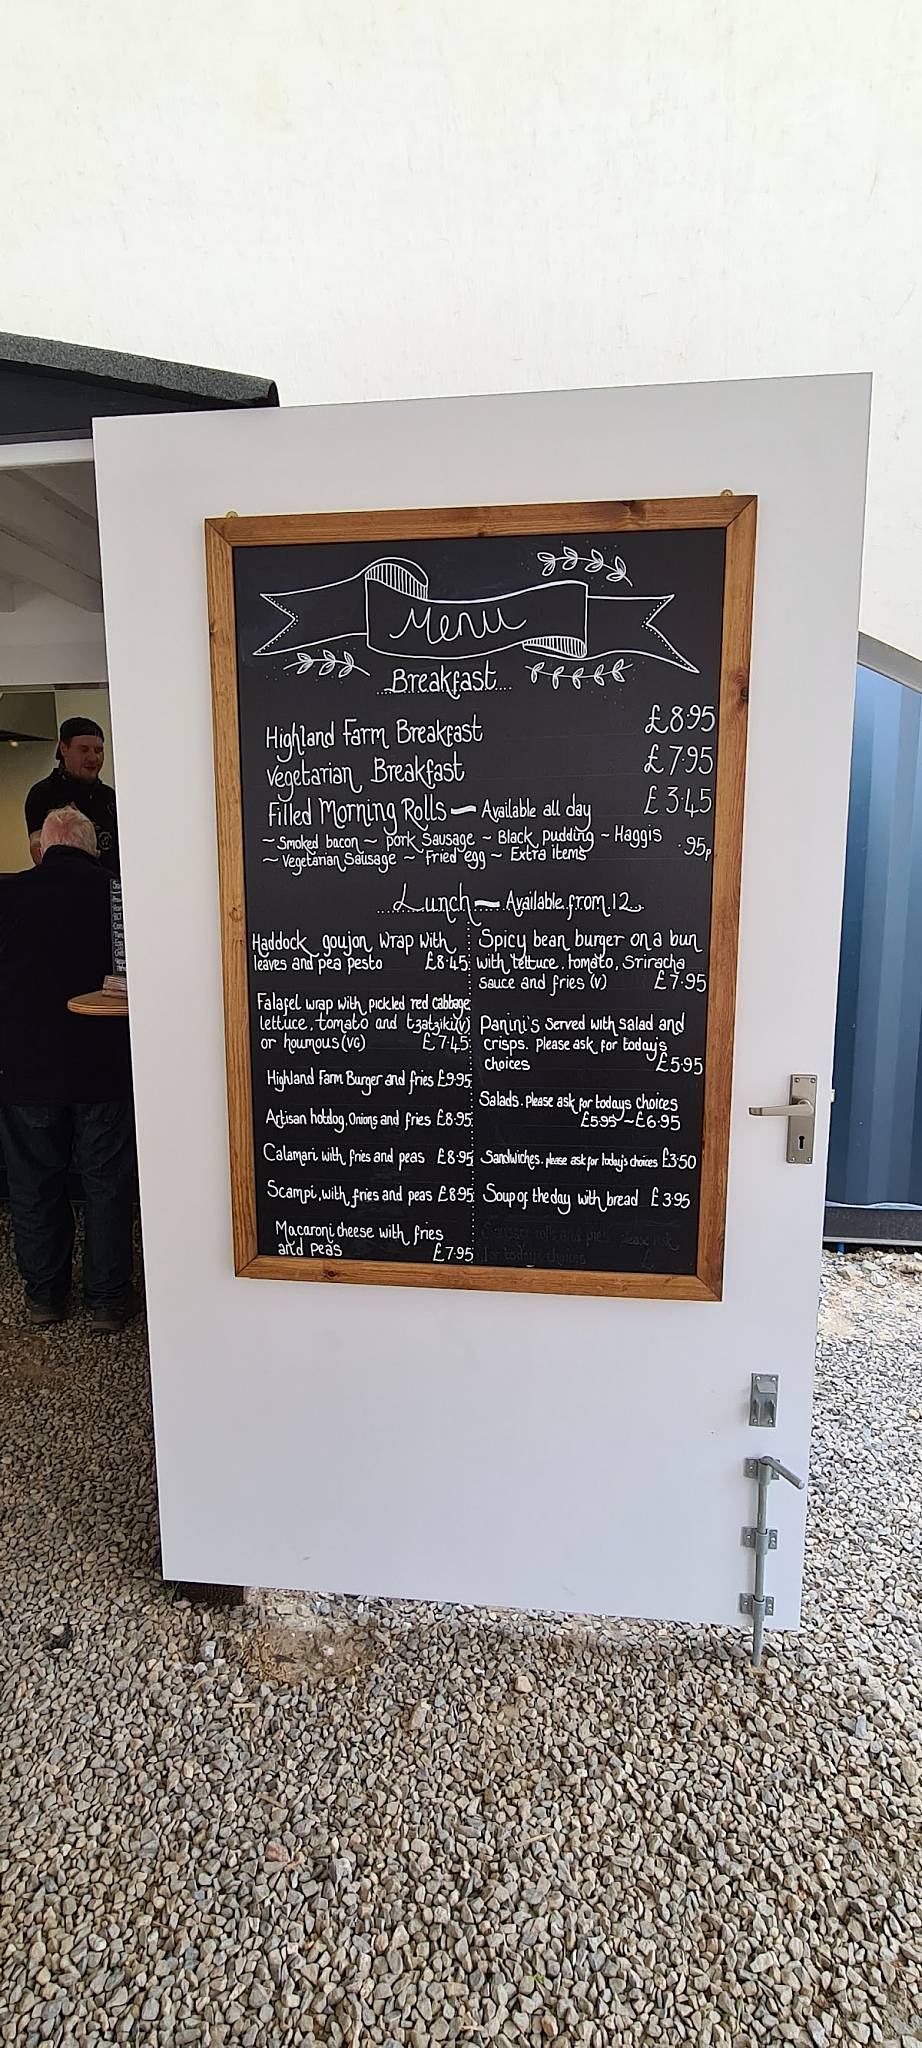 Menu
Breakfast
Highland Farm Breakfast £8.95
Vegetarian Breakfast £7.95
Filled Morning Rolls — Available all day £3.45
~ Smoked bacon ~ pork Sausage ~ Black pudding ~ Haggis .95p
~ Vegetarian Sausage ~ Fried egg ~ Extra items
Lunch — Available from 12
Haddock goujon wrap with
leaves and pea pesto £8.45
Falafel wrap with pickled red cabbage
lettuce, tomato and tzatziki(v)
or houmous(VG) £7.45
Highland Farm Burger and fries £9.95
Artisan hotdog, Onions and fries £8.95
Calamari with fries and peas £8.95
Scampi, with fries and peas £8.95
Macaroni cheese with fries
and peas £7.95
Spicy bean burger on a bun
with lettuce, tomato, Sriracha
sauce and fries (v) £7.95
Panini's Served with salad and
crisps. Please ask for today's
choices £5.95
Salads. Please ask for todays choices
£5.95 ~ £6.95
Sandwiches. please ask for today's choices £3.50
Soup of the day with bread £3.95
rolls and pies please ask
for today's choices £